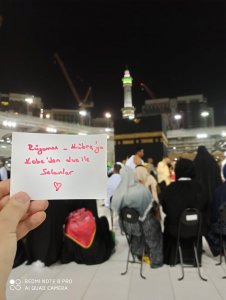 Rüyamız _ Kübra'ya
Kabe'den dua ile
Selamlar
REDMI NOTE 8 PRO
AI QUAD CAMERA